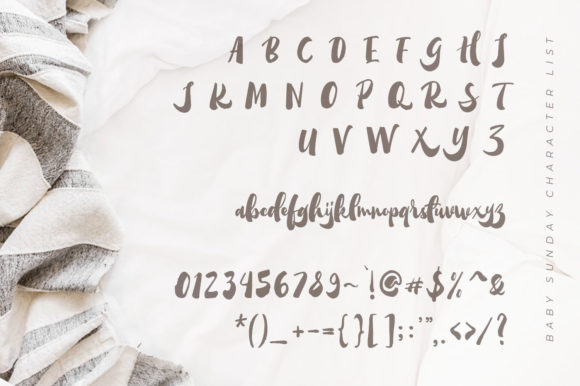 A B C D E F G H I
J K M N O P Q R S T
U V W X Y Z
abcdefghijklmnopqrstuvwxyz
0123456789~`!@#$%^&
*()_+-={}[];:'",.<>/?
BABY SUNDAY CHARACTER LIST